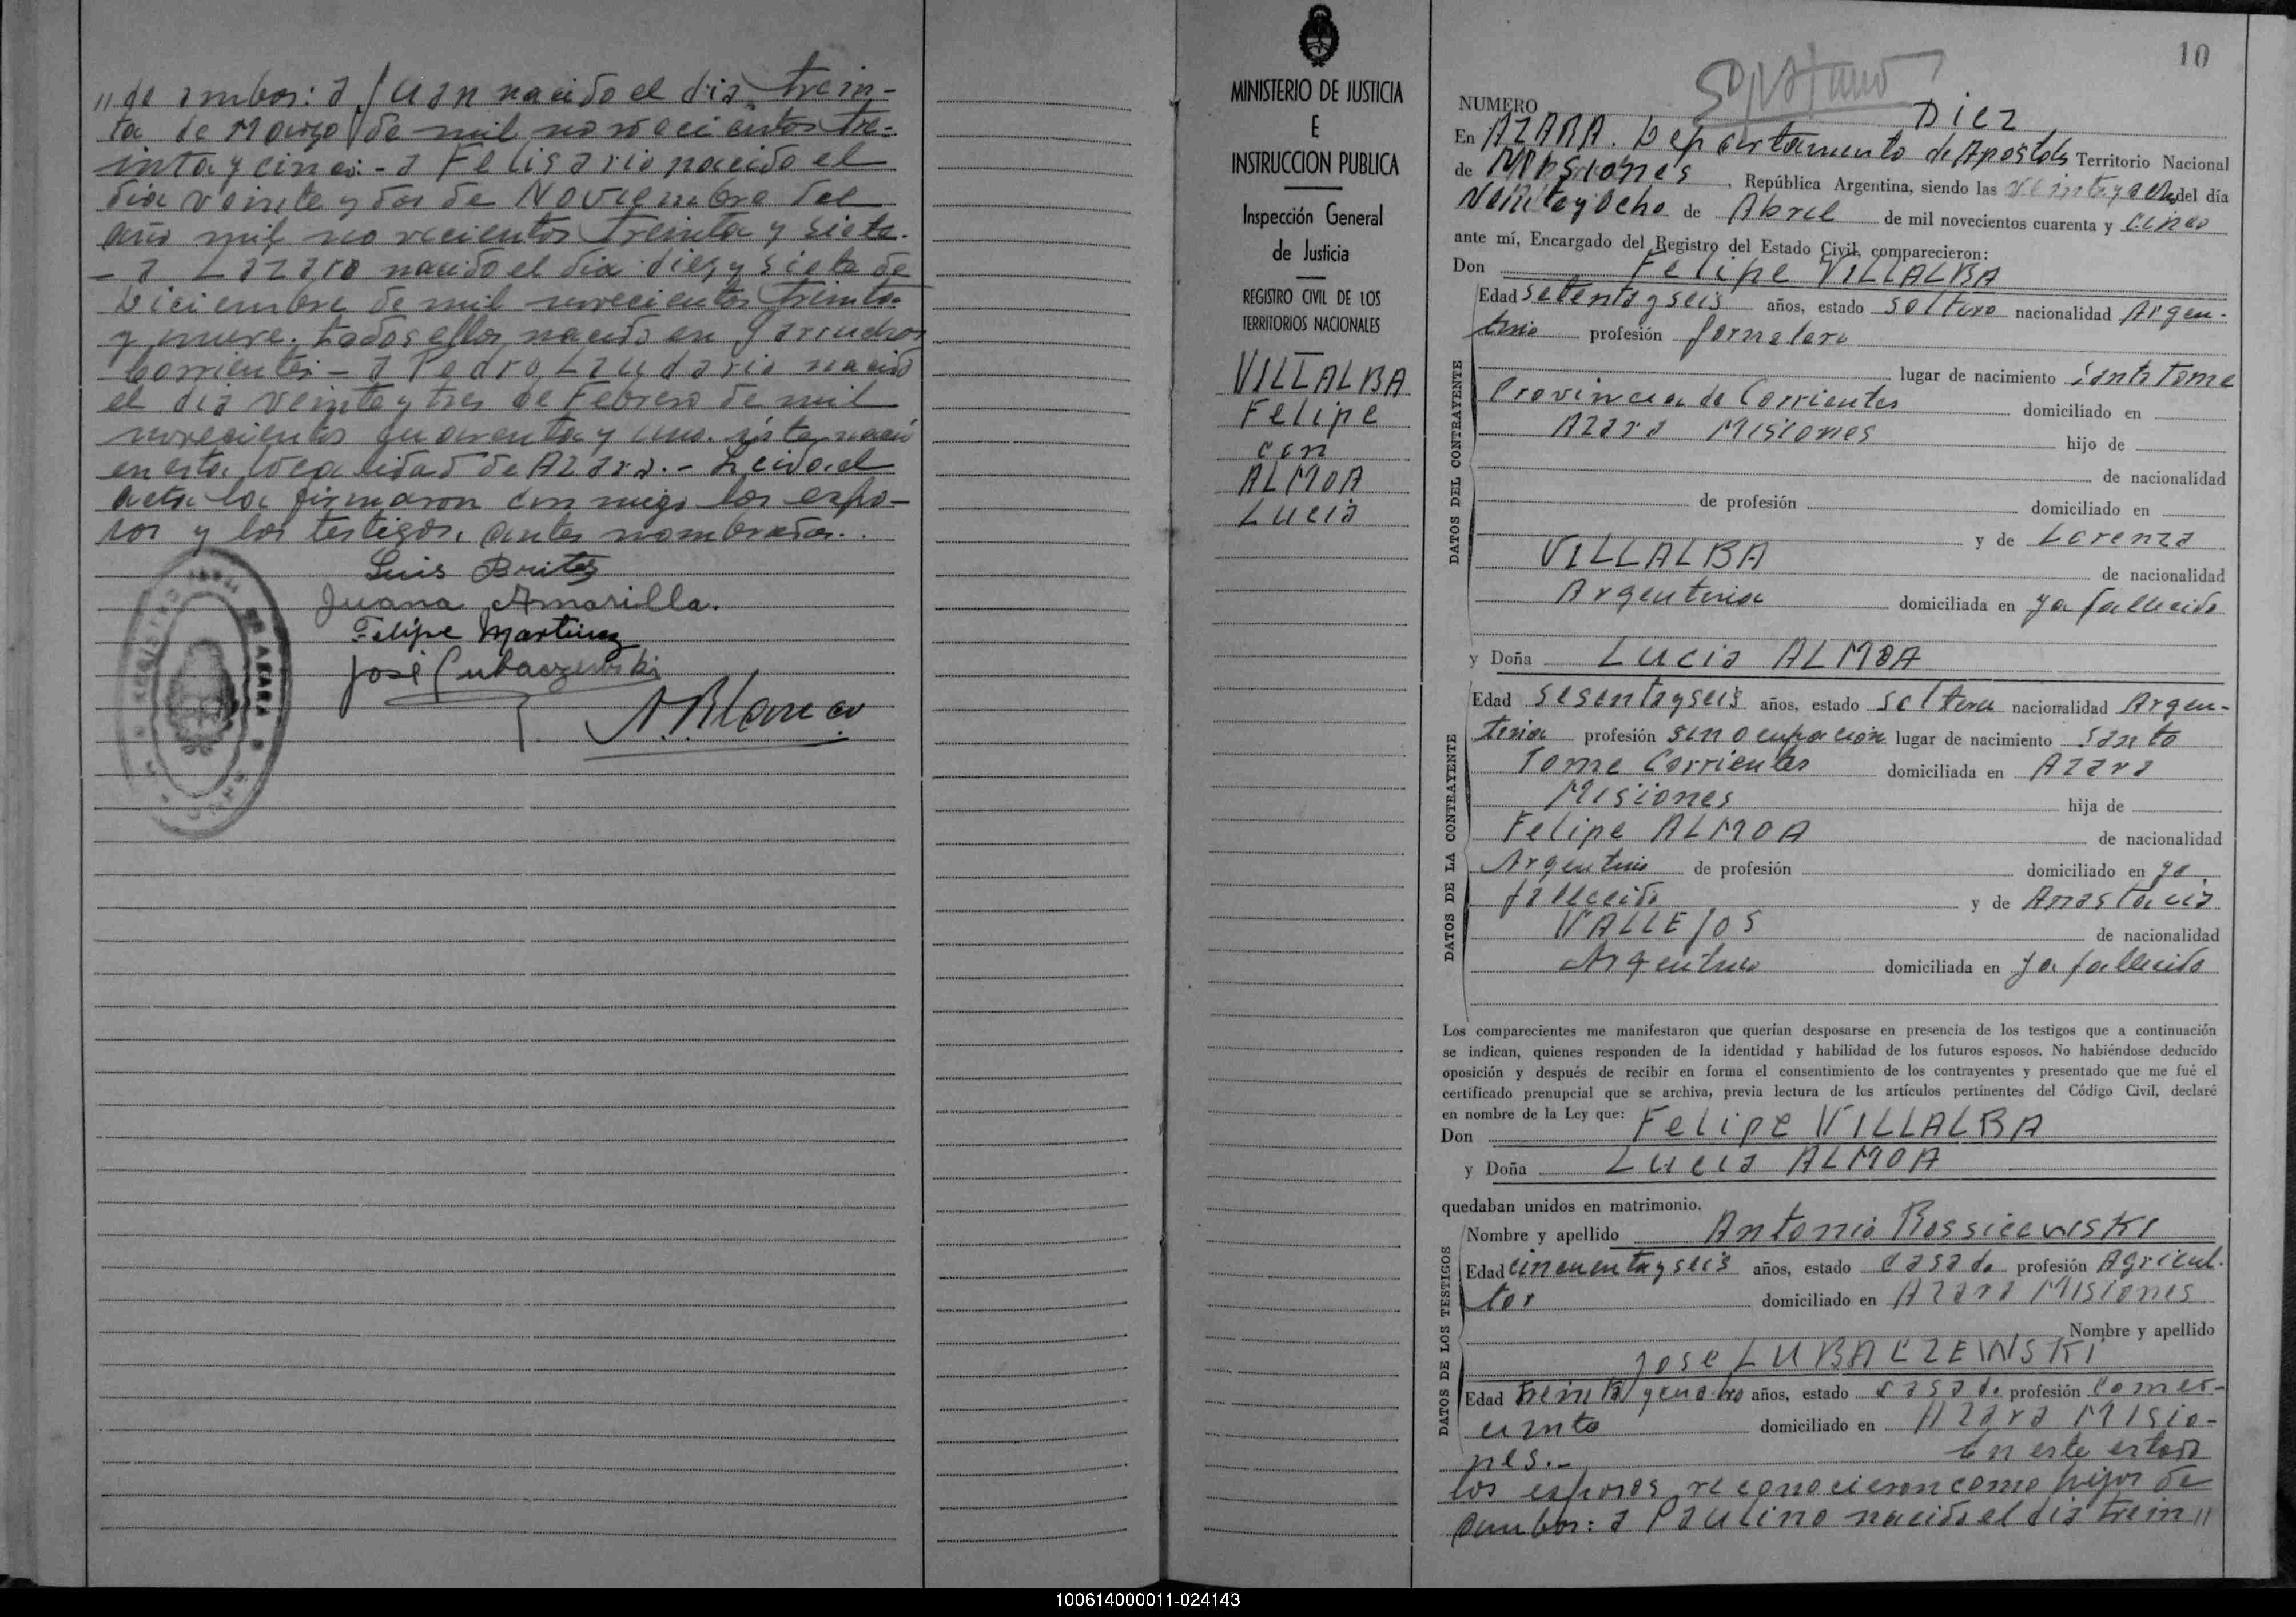 " de ambos: a Juan nacido el dia trein-
ta de Marzo de mil novecientos tre-
inta y cinco - a Felisario nacido el
dia veinte y dos de Noviembre del
año mil novecientos treinta y siete.
- a Lazaro nacido el dia diez y siete de
Diciembre de mil novecientos treinta
y nueve. todos ellos nacido en Garruchos
Corrientes - a Pedro Laudario nacido
el dia veinte y tres de Febrero de mil
novecientos cuarenta y uno. este nació
en esta localidad de Azara. - Leida el
acta la firmaron conmigo los espo-
sos y los testigos, antes nombrados..
Luis Britez
Juana Amarilla.
Felipe Martinez
José Lubaczewski
A. Blanco
REGISTRO
DE AZARA
MINISTERIO DE JUSTICIA
E
INSTRUCCION PUBLICA
Inspección General
de Justicia
REGISTRO CIVIL DE LOS
TERRITORIOS NACIONALES
VILLALBA
Felipe
con
ALMOA
Lucia
10
NUMERO Diez
En AZARA. Departamento de Apostoles Territorio Nacional
de Misiones, República Argentina, siendo las del día
Veinte y Ocho de Abril de mil novecientos cuarenta y cinco
ante mí, Encargado del Registro del Estado Civil, comparecieron:
Don Felipe VILLALBA
DATOS DEL CONTRAYENTE
Edad setenta y seis años, estado soltero nacionalidad Argen-
tino profesión Jornalero
lugar de nacimiento Santo Tome
Provincia de Corrientes domiciliado en
Azara Misiones hijo de
de nacionalidad
de profesión domiciliado en
y de Lorenza
VILLALBA de nacionalidad
Argentina domiciliada en ya fallecida
y Doña Lucia ALMOA
DATOS DE LA CONTRAYENTE
Edad sesenta y seis años, estado soltera nacionalidad Argen-
tina profesión sin ocupacion lugar de nacimiento Santo
Tome Corrientes domiciliada en Azara
Misiones hija de
Felipe ALMOA de nacionalidad
Argentino de profesión domiciliado en ya
fallecido y de Anastacia
VALLEJOS de nacionalidad
Argentina domiciliada en ya fallecida
Los comparecientes me manifestaron que querían desposarse en presencia de los testigos que a continuación
se indican, quienes responden de la identidad y habilidad de los futuros esposos. No habiéndose deducido
oposición y después de recibir en forma el consentimiento de los contrayentes y presentado que me fué el
certificado prenupcial que se archiva, previa lectura de los artículos pertinentes del Código Civil, declaré
en nombre de la Ley que:
Don Felipe VILLALBA
y Doña Lucia ALMOA
quedaban unidos en matrimonio.
DATOS DE LOS TESTIGOS
Nombre y apellido Antonio Rossicewiski
Edad cincuenta y seis años, estado casado profesión Agricul-
tor domiciliado en Azara Misiones
Nombre y apellido
Jose LUBACZEWSKI
Edad treinta y cuatro años, estado casado profesión Comer-
ciante domiciliado en Azara Misio-
nes.- En este estado
los esposos reconocieron como hijos de
ambos: a Paulino nacido el dia trein "
100614000011-024143